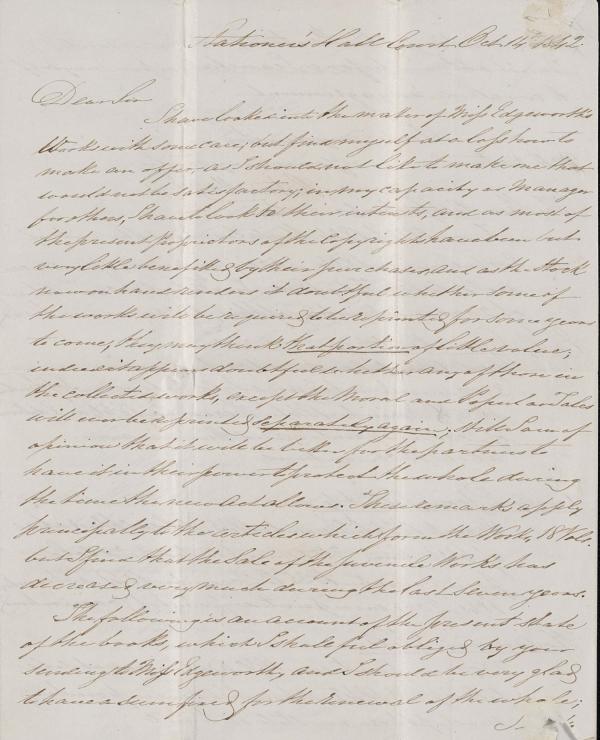 Stationer's Hall Court Oct. 14th 1842
Dear Sir
I have looked into the matter of Miss Edgeworth's
Works with some care; but find myself at a loss how to
make an offer, as I should not like to make one that
would not be satisfactory; in my capacity as Manager
for others, I have to look to their interests, and as most of
the present Proprietors of the Copyrights have been but
very little benefited by their purchases, and as the Stock
now on hand renders it doubtful whether some of
the works will be required to be reprinted for some years
to come, they may think that portion of little value;
indeed it appears doubtful whether any of those in
the collected work, except the Moral and Popular Tales
will ever be printed separately again, still I am of
opinion that it will be better for the partners to
have it in their power to protect the whole during
the time the new Act allows. These remarks apply
principally to the articles which form the Work, 18 Vols.
but I find that the Sale of the Juvenile Works has
decreased very much during the last seven years.
The following is an account of the present state
of the books, which I shall feel obliged by your
sending to Miss Edgeworth, and I should be very glad
to have a sum fixed for the renewal of the whole;